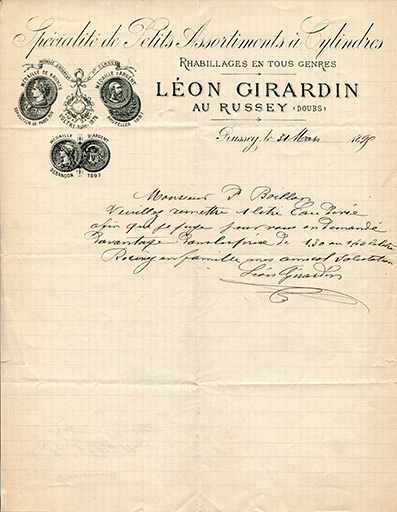 Spécialité de Petits Assortiments à Cylindres
RHABILLAGES EN TOUS GENRES
LÉON GIRARDIN
AU RUSSEY (DOUBS)
MÉDAILLE DE BRONZE
MÉDAILLE D'ARGENT
1876
BRUXELLES
MÉDAILLE D'ARGENT
BESANÇON 1893
Russey, le 31 Mars 189
Monsieur P Boillon
Veuillez remettre 1 litre Eau
afin que je juge pour vous en demandé
davantage dans les prix de 1.30 au litre
Recevez en famille mes amical Salutation
Léon Girardin